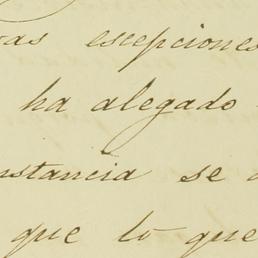 vas escepciones
ha alegado
nstancia se
que lo que